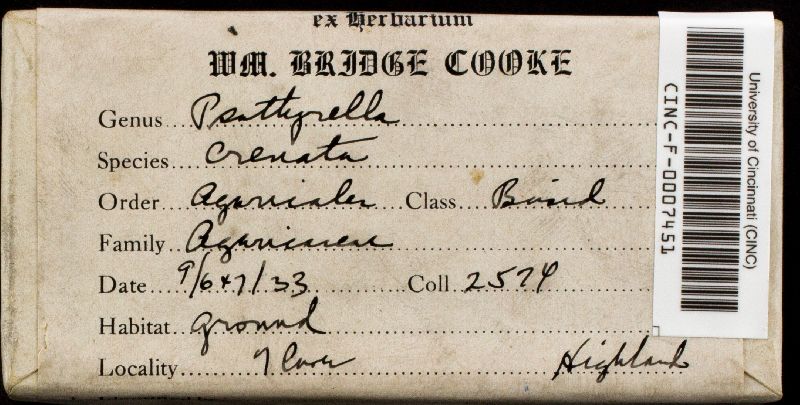 ex Herbarium
WM. BRIDGE COOKE
Genus Psathyrella
Species crenata
Order Agaricales Class Basid
Family Agaricaceae
Date 9/6+7/33 Coll 2574
Habitat ground
Locality Highland
University of Cincinnati (CINC)
CINC-F-0007451